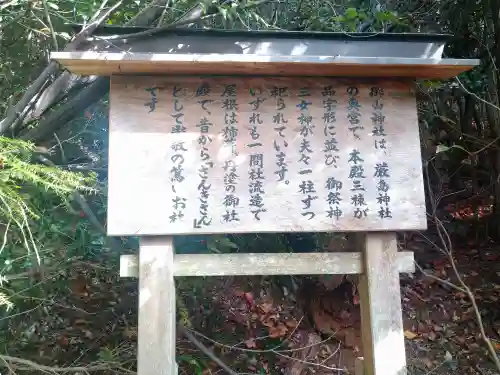 御山神社は、厳島神社
の奥宮で、本殿三棟が
品字形に並び、御祭神
三女神が一柱ずつ
祀られています。
いずれも一間社流造で
屋根は柿葺、丹塗の御社
殿で、昔から「さんきさん」
として崇敬の篤いお社
です。